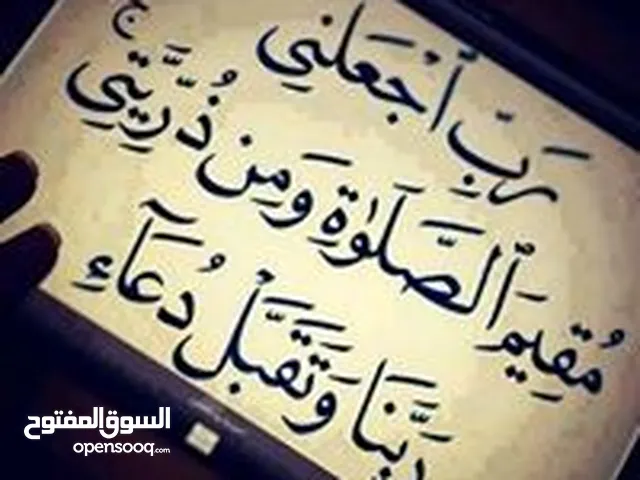 رَبِّ ٱجْعَلْنِي
مُقِيمَ ٱلصَّلَوٰةِ وَمِن ذُرِّيَّتِي ۚ
رَبَّنَا وَتَقَبَّلْ دُعَآءِ
السوق المفتوح
opensooq.com